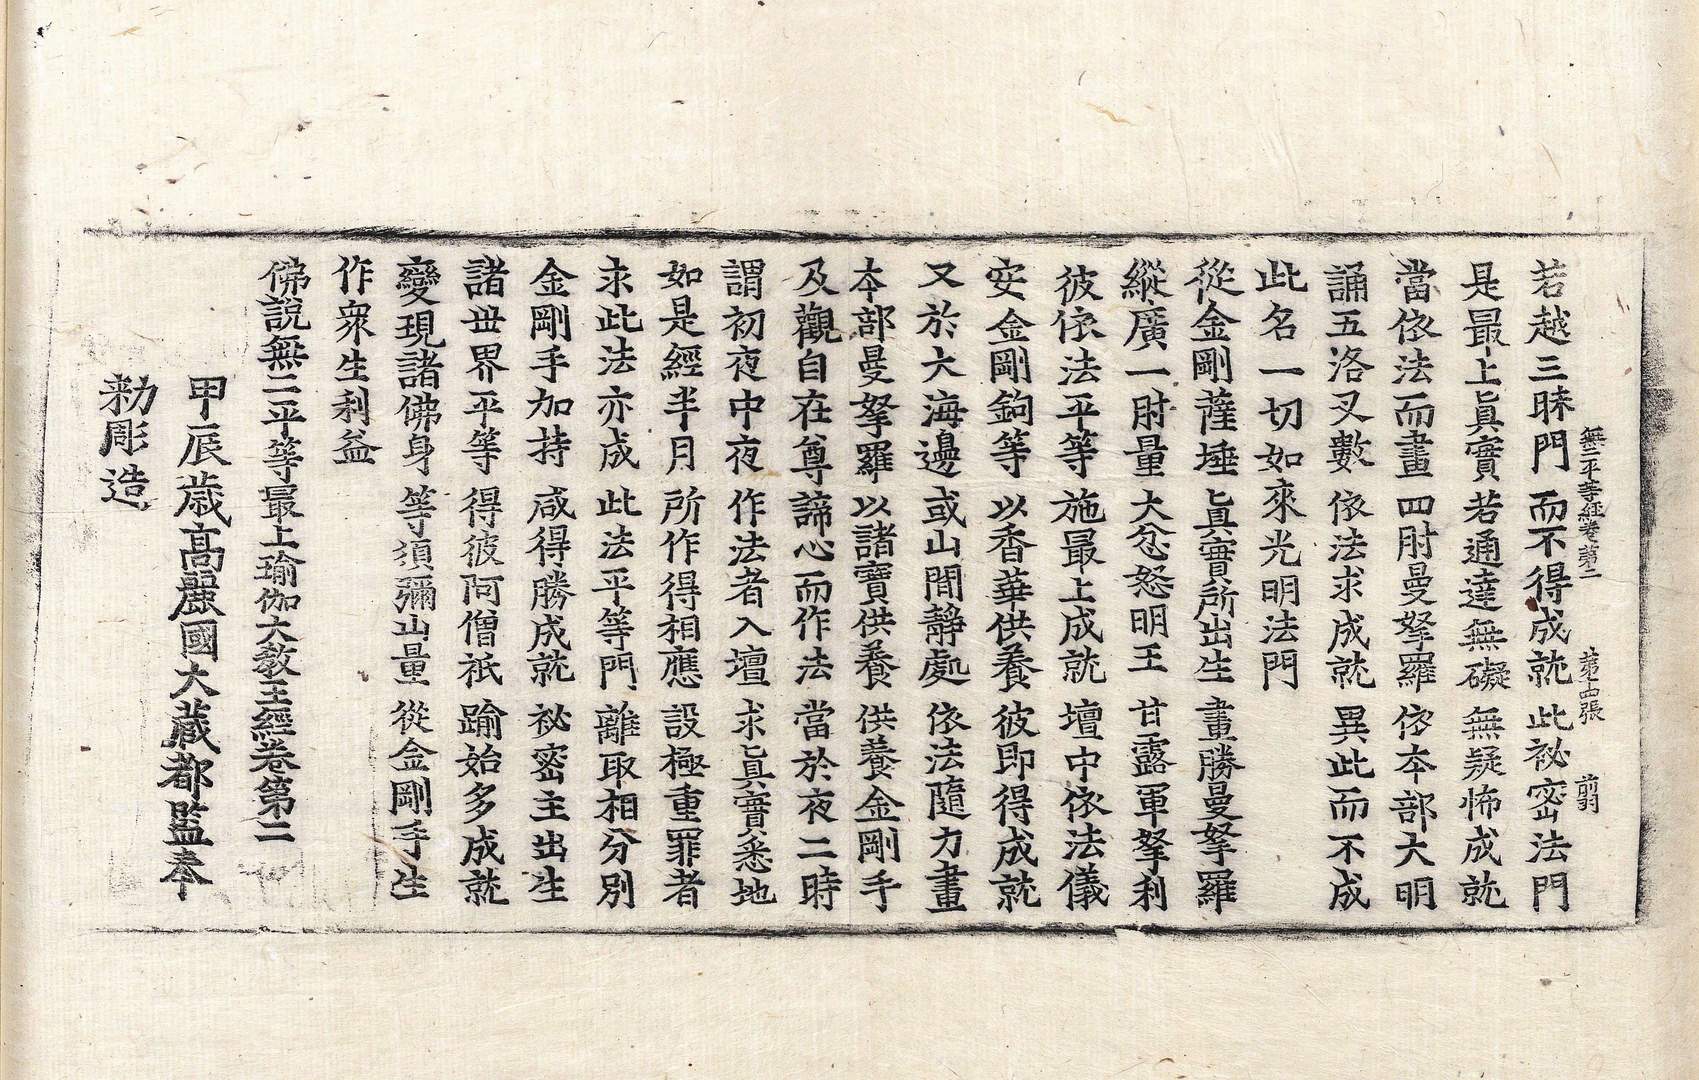 無二平等經卷第二 第十四張 前
若越三昧門 而不得成就 此祕密法門
是最上眞實 若通達無礙 無疑怖成就
當依法而畫 四肘曼拏羅 依本部大明
誦五洛叉數 依法求成就 異此而不成
此名一切如來光明法門
從金剛薩埵 眞實所出生 畫勝曼拏羅
縱廣一肘量 大忿怒明王 甘露軍拏利
彼依法平等 施最上成就 壇中依法儀
安金剛鉤等 以香華供養 彼即得成就
又於大海邊 或山間靜處 依法隨力畫
本部曼拏羅 以諸寶供養 供養金剛手
及觀自在尊 諦心而作法 當於夜二時
謂初夜中夜 作法者入壇 求眞實悉地
如是經半月 所作得相應 設極重罪者
求此法亦成 此法平等門 離取相分別
金剛手加持 咸得勝成就 祕密主出生
諸世界平等 得彼阿僧祇 踰始多成就
變現諸佛身 等須彌山量 從金剛手生
作衆生利益
佛說無二平等最上瑜伽大敎王經卷第二
甲辰歲高麗國大藏都監奉
勑彫造